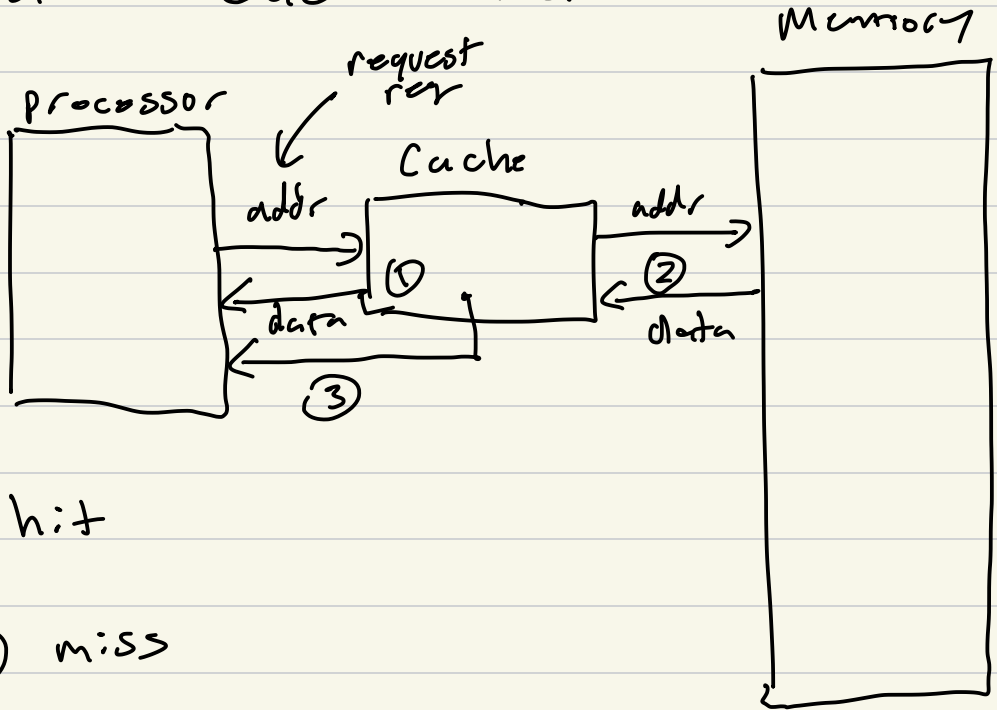 Memory
request
req
processor
Cache
addr
addr
①
②
data
data
③
hit
) miss